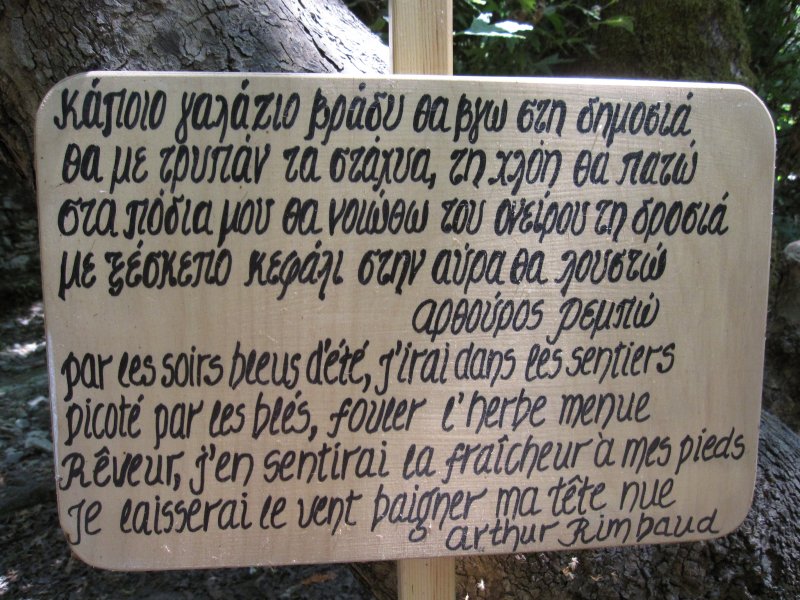 κάποιο γαλάζιο βράδυ θα βγω στη δημοσιά
θα με τρυπάν τα στάχυα, τη χλόη θα πατώ
στα πόδια μου θα νοιώθω του ονείρου τη δροσιά
με ξέσκεπο κεφάλι στην αύρα θα λουστώ
αρθούρος ρεμπώ
par les soirs bleus d'été, j'irai dans les sentiers
picoté par les blés, fouler l'herbe menue
Rêveur, j'en sentirai la fraîcheur à mes pieds
Je laisserai le vent baigner ma tête nue
arthur Rimbaud